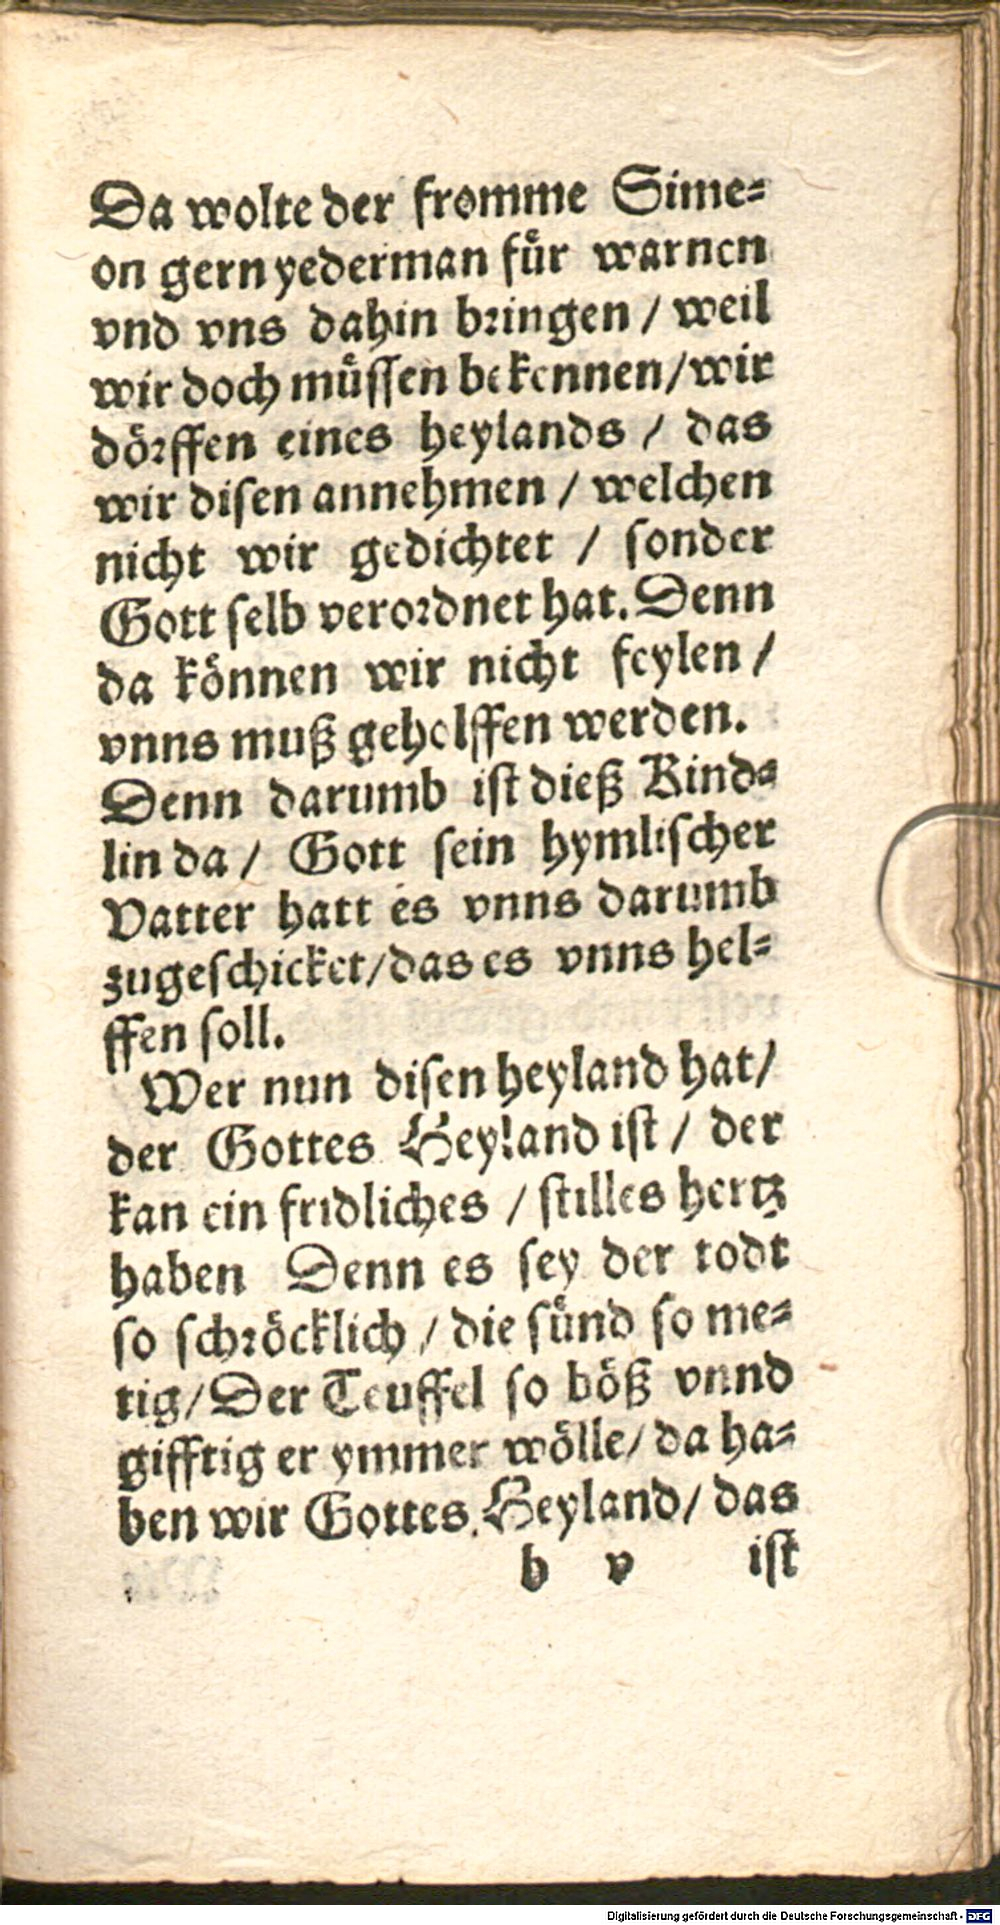 Da wolte der fromme Sime-
on gern yederman für warnen
vnd vns dahin bringen / weil
wir doch müssen bekennen/wir
dörffen eines heylands / das
wir disen annehmen / welchen
nicht wir gedichtet / sonder
Gott selb verordnet hat. Denn
da können wir nicht feylen /
vnns muß geholffen werden.
Denn darumb ist dieß Kind-
lin da / Gott sein hymlischer
Vatter hatt es vnns darumb
zugeschicket/das es vnns hel-
ffen soll.
Wer nun disen heyland hat/
der Gottes Heyland ist / der
kan ein fridliches / stilles hertz
haben Denn es sey der todt
so schröcklich / die sünd so me-
tig/Der Teuffel so böß vnnd
gifftig er ymmer wölle/ da ha-
ben wir Gottes Heyland/ das
b v ist
Digitalisierung gefördert durch die Deutsche Forschungsgemeinschaft - DFG